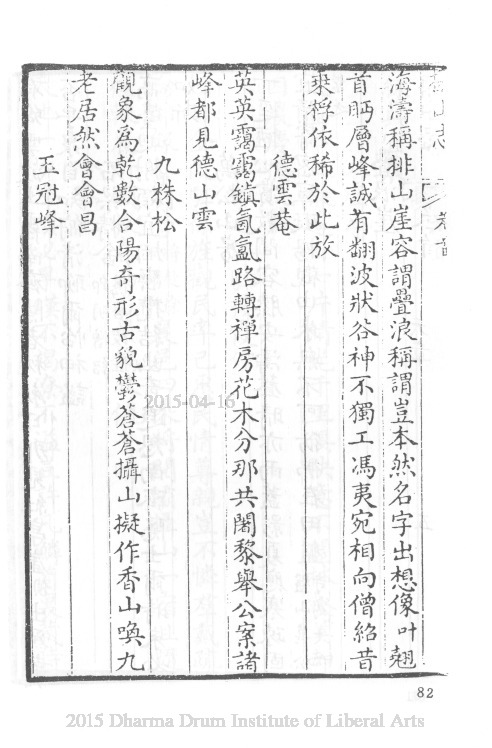 海濤稱排山崖容謂疊浪稱謂豈本然名字出想像叶翹
首眄層峰誠有翻波狀谷神不獨工馮夷宛相向僧紹昔
乘桴依稀於此放
德雲菴
英英靄靄鎮氤氳路轉禪房花木分那共闍黎舉公案諸
峰都見德山雲
九株松
觀象為乾數合陽奇形古貌鬱蒼蒼攝山擬作香山喚九
老居然會會昌
玉冠峰
2015-04-16
82
2015 Dharma Drum Institute of Liberal Arts